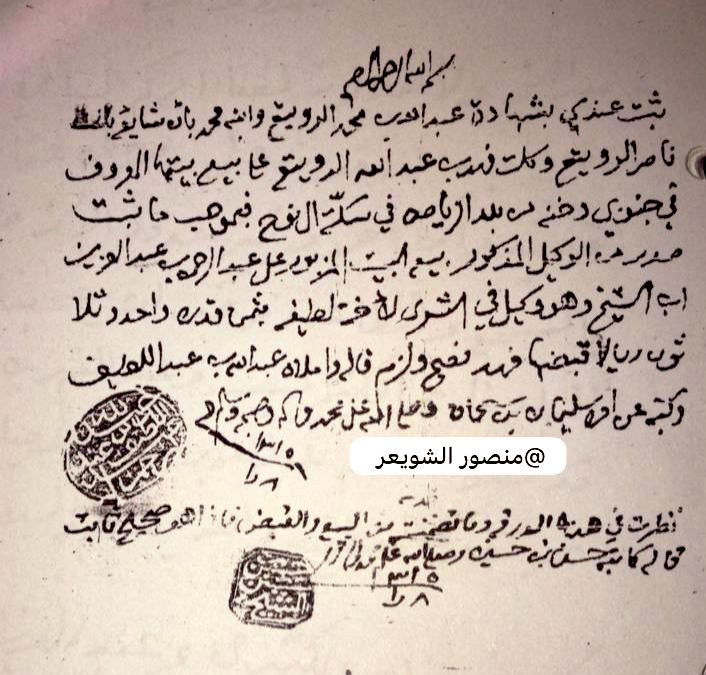 بسم الله الرحمن الرحيم
ثبت عندي بشهادة عبدالله بن محمد الرويتع وابنه محمد بان شايع بنت
ناصر الرويتع وكلت فهد بن عبد الله الرويتع على بيع بيتها المعروف
في جنوبي دخنه من بلد الرياض في سكة ال نوح فبموجب ما ثبت
صدر من الوكيل المذكور بيع البيت المزبور على عبد الرحمن بن عبد العزيز
ال الشيخ وهو وكيل في الشرى لأخته لطيفه بثمن قدره واحد وثلا
ثون ريالا قبضها فهد فصح ولزم قاله واملاه عبدالله بن عبد اللطيف
وكتبه عن امره سليمان بن سحمان وصلى الله على محمد واله وصحبه وسلم
١٣١٥
@منصور الشويعر
نظرت في هذه الورقه وما تضمنته من البيع والقبض فاذا هو صحيح ثابت
قاله كاتبه حسن بن حسين وصلى الله على محمد
١٣١٥